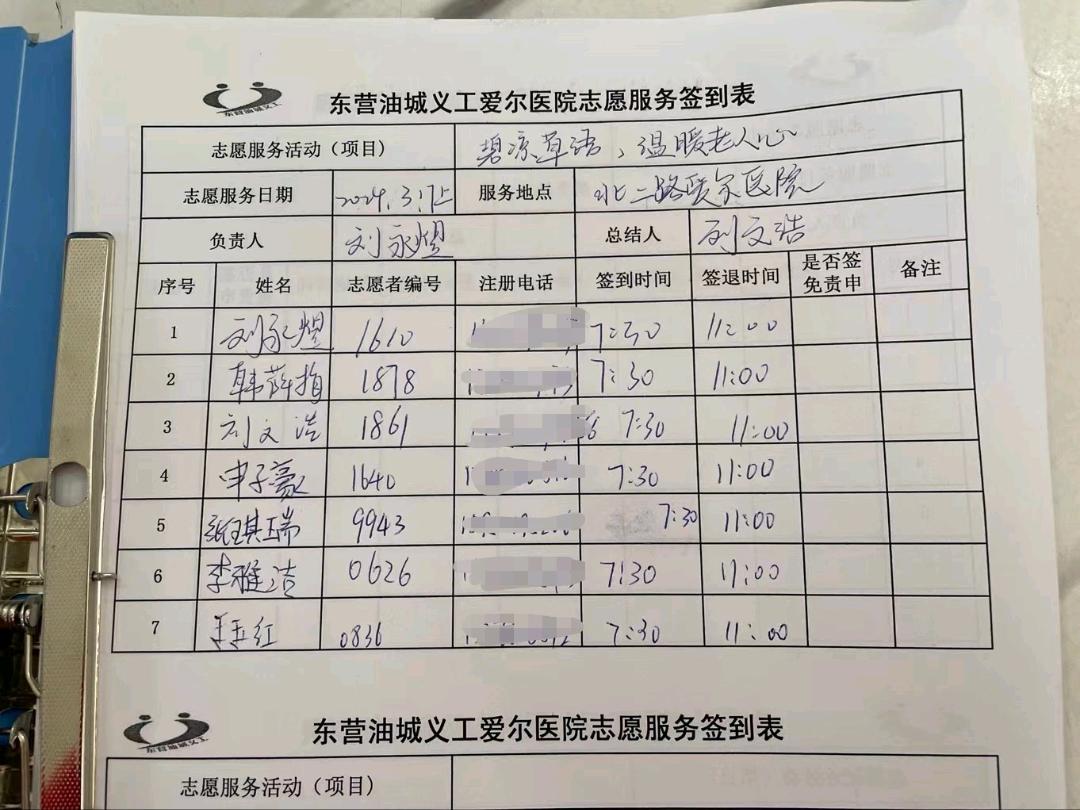 东营油城义工
东营油城义工爱尔医院志愿服务签到表
志愿服务活动（项目） 碧凉草语、温暖老人心
志愿服务日期 2024.3.17上 服务地点 北二路爱尔医院
负责人 刘永煜 总结人 刘文浩
序号 姓名 志愿者编号 注册电话 签到时间 签退时间 是否签免责申 备注
1 刘永煜 1610 7:30 11:00
2 韩 1878 7:30 11:00
3 刘文浩 1861 7:30 11:00
4 申子豪 1640 7:30 11:00
5 张琪瑞 9943 7:30 11:00
6 李雅洁 0626 7:30 11:00
7 王玉红 0836 7:30 11:00
东营油城义工
东营油城义工爱尔医院志愿服务签到表
志愿服务活动（项目）